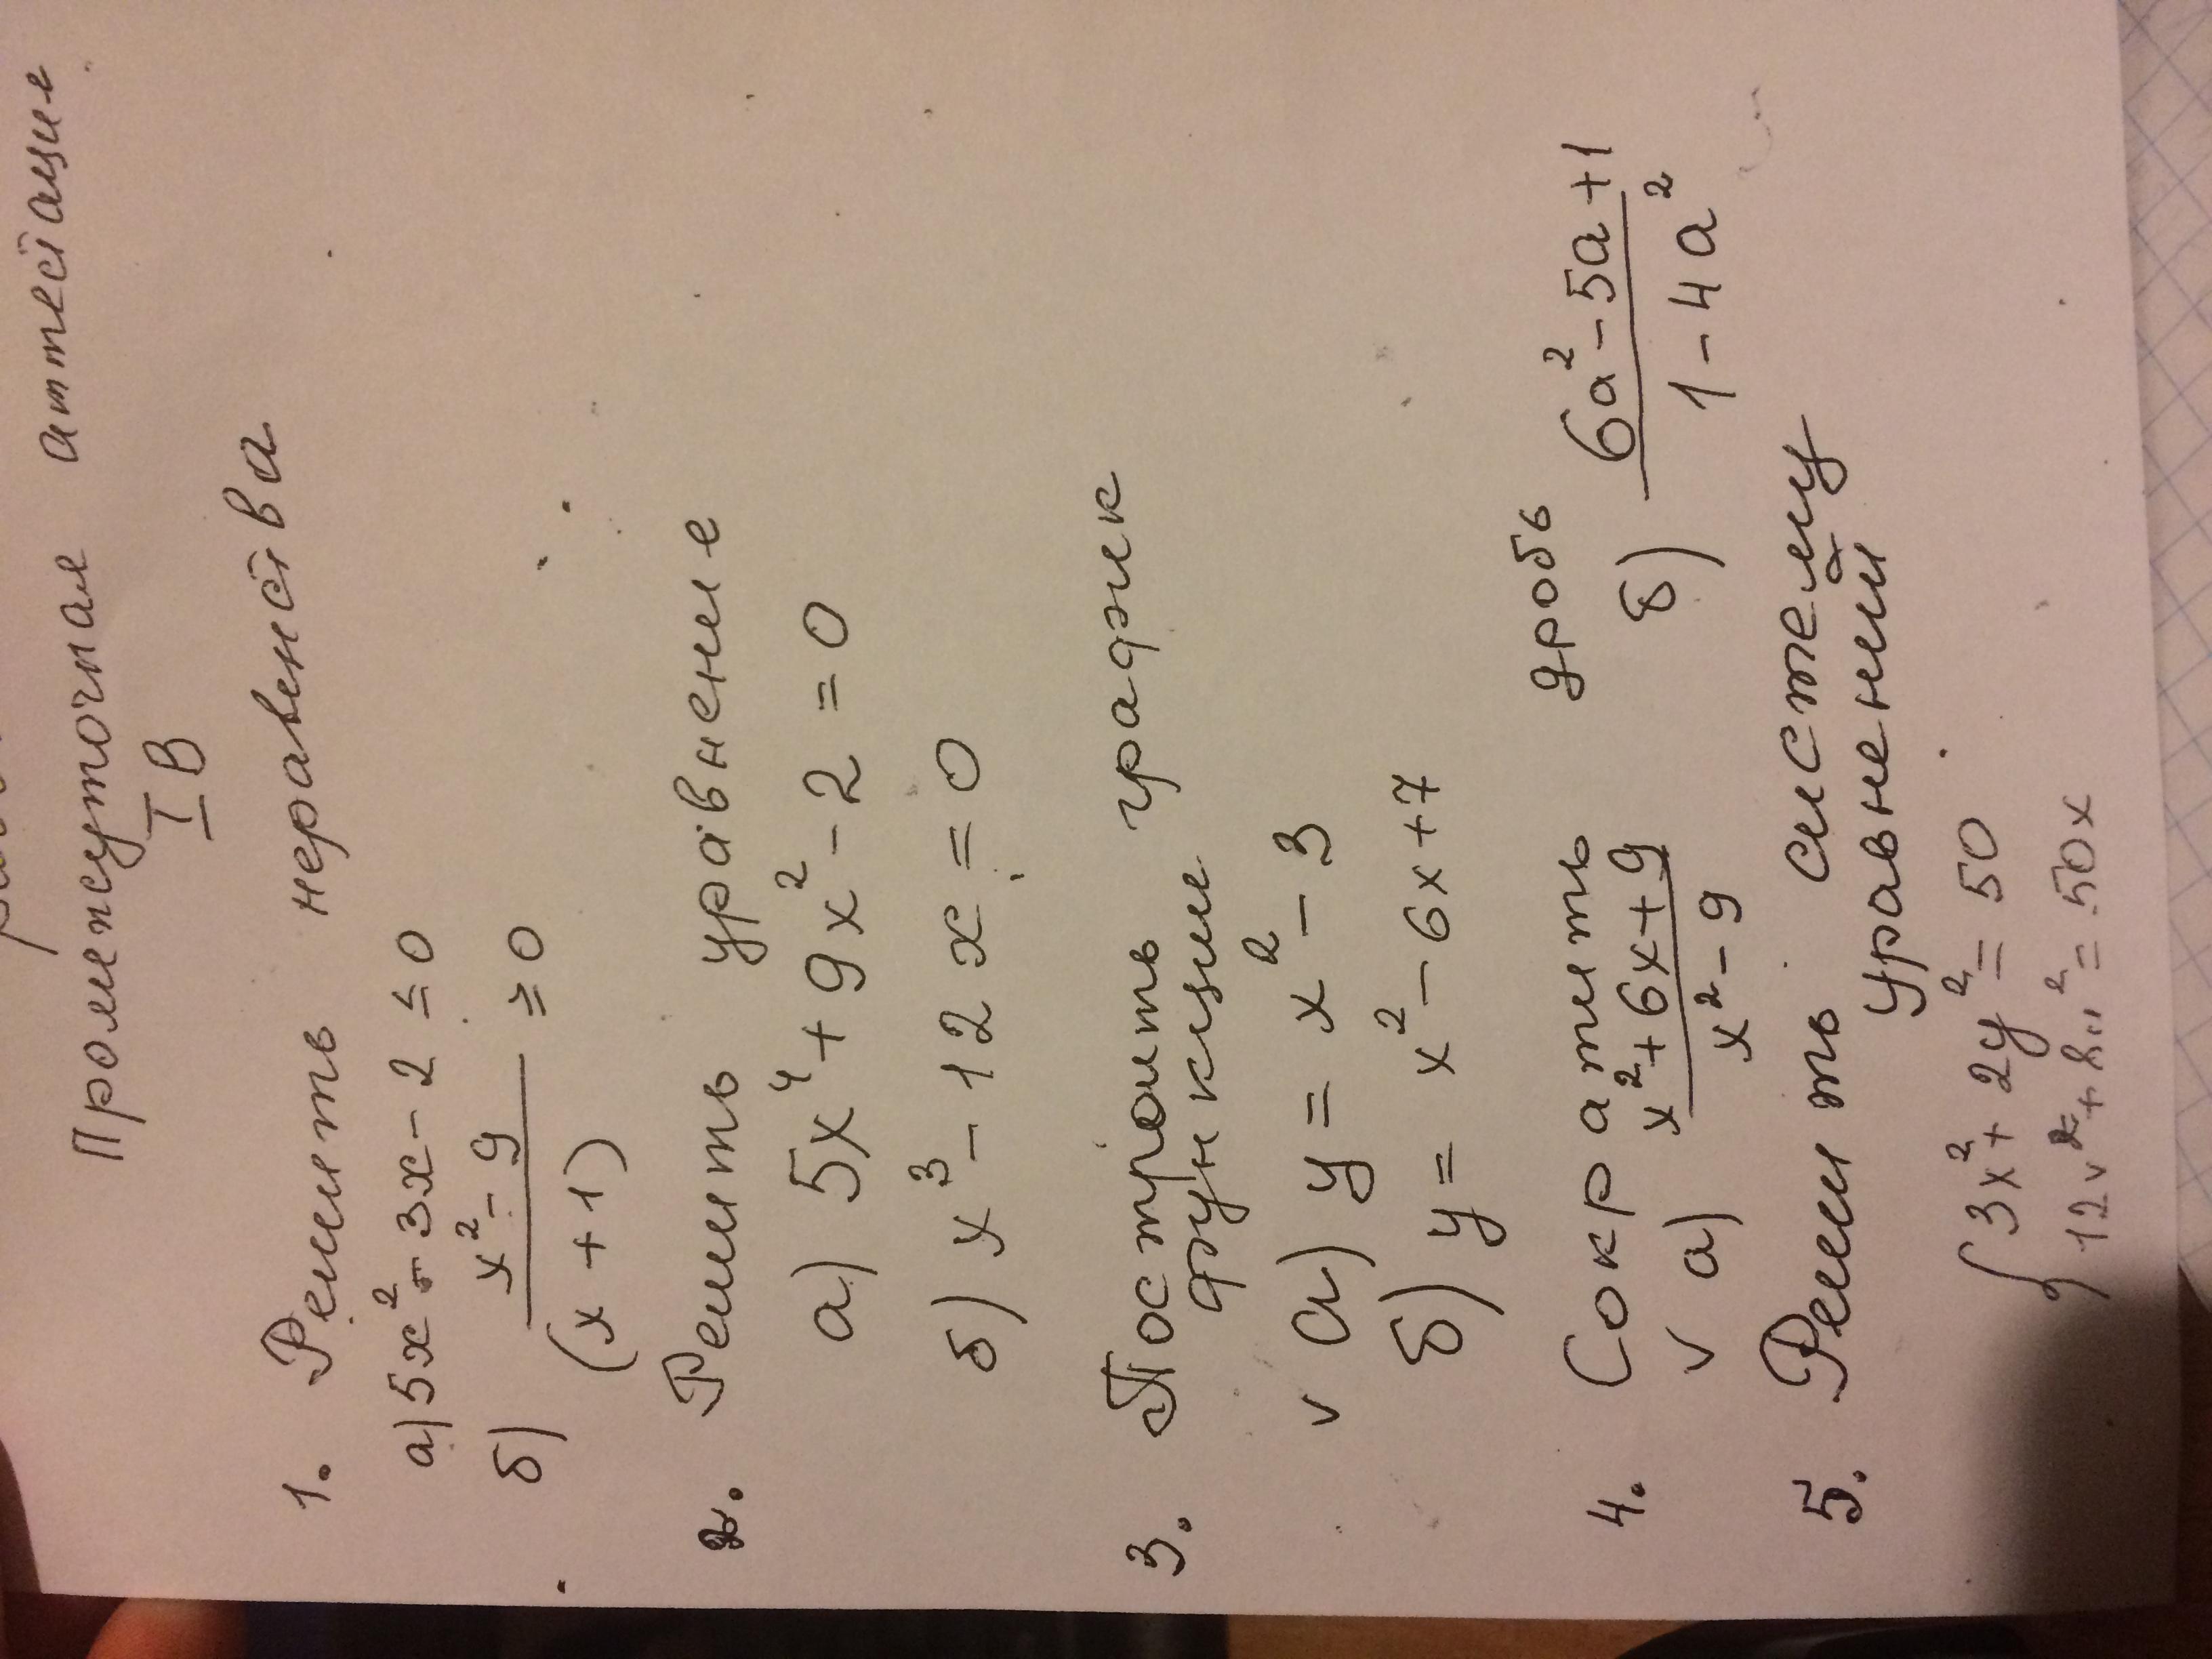 Промежуточная аттестация
I В
1. Решить неравенства
а) 5x² - 3x - 2 ≤ 0
б) x² - 9 / (x + 1) ≥ 0
2. Решить уравнение
а) 5x⁴ + 9x² - 2 = 0
б) x³ - 12x = 0
3. Построить график
функции
v а) y = x² - 3
б) y = x² - 6x + 7
4. Сократить дробь
v а) x² + 6x + 9 / x² - 9 б) 6a² - 5a + 1 / 1 - 4a²
5. Решить систему
уравнений
{ 3x² + 2y² = 50
12x² + 8y² = 50x